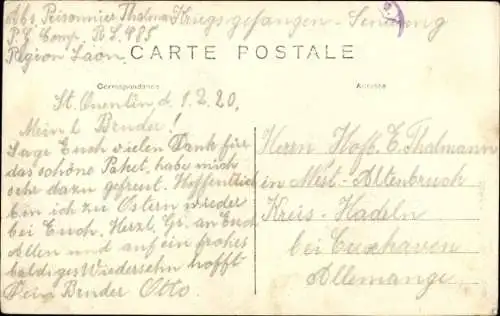 Abs. Prisonnier Thalmann Kriegsgefangen-Sendung
P.G. Comp. R.L. 985
Region Laon
CARTE POSTALE
Correspondance
Adresse
St. Quentin d. 1.2.20.
Mein l. Bruder!
Sage Euch vielen Dank für
das schöne Paket, habe mich
sehr dazu gefreut. Hoffentlich
bin ich zu Ostern wieder
bei Euch. Herzl. Gr. an Euch
Allen und auf ein frohes
baldiges Wiedersehn hofft
Dein Bruder Otto.
Herrn Hofb. E. Thalmann
in West-Altenbruch
Kreis-Hadeln
bei Cuxhaven
Allemange